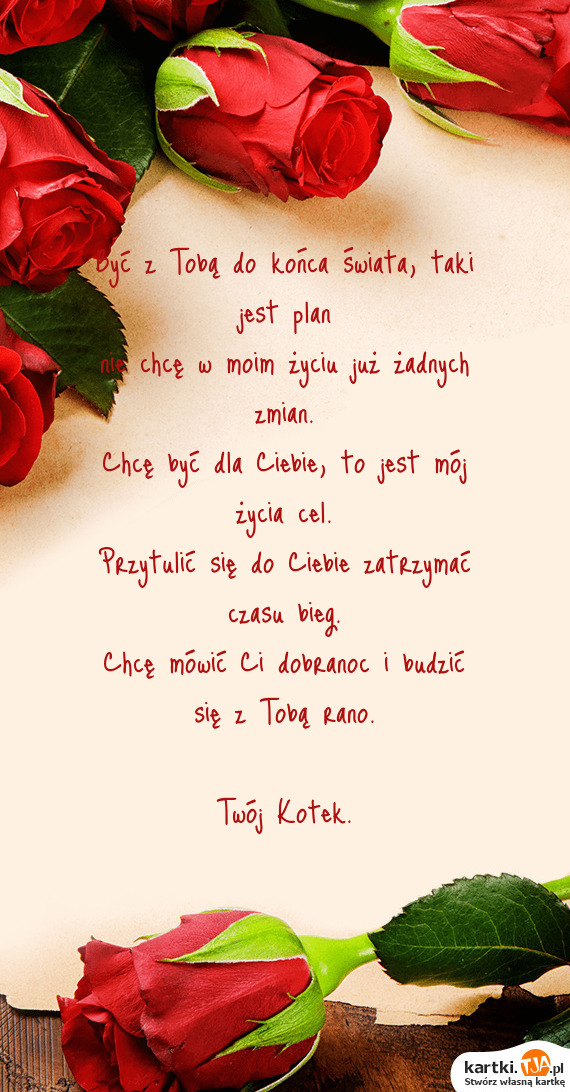 Być z Tobą do końca świata, taki
jest plan
nie chcę w moim życiu już żadnych
zmian.
Chcę być dla Ciebie, to jest mój
życia cel.
Przytulić się do Ciebie zatrzymać
czasu bieg.
Chcę mówić Ci dobranoc i budzić
się z Tobą rano.
Twój Kotek.
kartki.TJA.pl
Stwórz własną kartkę